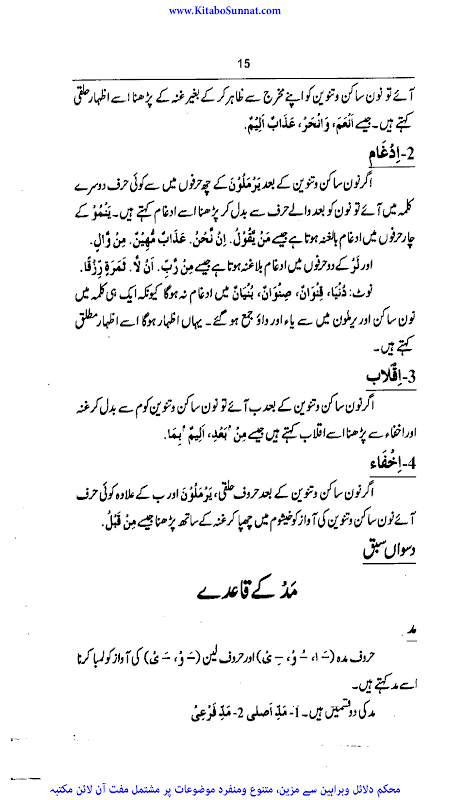 www.KitaboSunnat.com
15
آئے تو نون ساکن و تنوین کو اپنے مخرج سے ظاہر کر کے بغیر غنہ کے پڑھنا اسے اظہار حلقی
کہتے ہیں۔ جیسے اَنْعَمَ، وَانْحَرْ، عَذَابٌ اَلِیْمٌ.
2-اِدْغَام
اگر نون ساکن و تنوین کے بعد یَرْمَلُوْنَ کے چھ حرفوں میں سے کوئی حرف دوسرے
کلمہ میں آئے تو نون کو بعد والے حرف سے بدل کر پڑھنا اسے ادغام کہتے ہیں۔ یَنْمُوْ کے
چار حرفوں میں ادغام بالغنہ ہوتا ہے جیسے مَنْ یَّقُوْلُ. اِنْ نَّحْنُ. عَذَابٌ مُّهِیْنٌ. مِنْ وَّالٍ.
اور لَرْ کے دو حرفوں میں ادغام بلا غنہ ہوتا ہے جیسے مِنْ رَّبِّ. اَنْ لَّا. ثَمَرَةٍ رِّزْقًا.
نوٹ: دُنْیَا، قِنْوَانٌ، صِنْوَانٌ، بُنْیَانٌ میں ادغام نہ ہوگا کیونکہ ایک ہی کلمہ میں
نون ساکن اور یرملون میں سے یاء اور واؤ جمع ہو گئے۔ یہاں اظہار ہوگا اسے اظہار مطلق
کہتے ہیں۔
3-اِقْلَاب
اگر نون ساکن و تنوین کے بعد ب آئے تو نون ساکن و تنوین کو م سے بدل کر غنہ
اور اخفاء سے پڑھنا اسے اقلاب کہتے ہیں جیسے مِنْۢ بَعْدِ، اَلِیْمٌۢ بِمَا.
4-اِخْفَاء
اگر نون ساکن و تنوین کے بعد حروف حلقی، یَرْمَلُوْنَ اور ب کے علاوہ کوئی حرف
آئے نون ساکن و تنوین کی آواز کو خیشوم میں چھپا کر غنہ کے ساتھ پڑھنا جیسے مِنْ قَبْلُ.
دسواں سبق
مَدّ کے قاعدے
مد
حروف مدہ (ـَ ا، ـُ وْ، ـِ یْ) اور حروف لین (ـَ وْ، ـَ یْ) کی آواز کو لمبا کرنا
اسے مد کہتے ہیں۔
مد کی دو قسمیں ہیں۔ 1- مَدِّ اَصلی 2- مَدِّ فَرْعِیْ
محکم دلائل وبراہین سے مزین، متنوع ومنفرد موضوعات پر مشتمل مفت آن لائن مکتبہ